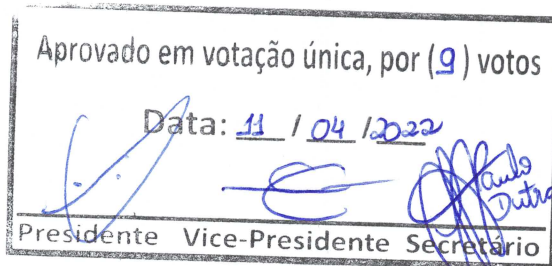 Aprovado em votação única, por (9) votos
Data: 11 / 04 /2022
Paulo
Dutra
Presidente Vice-Presidente Secretário